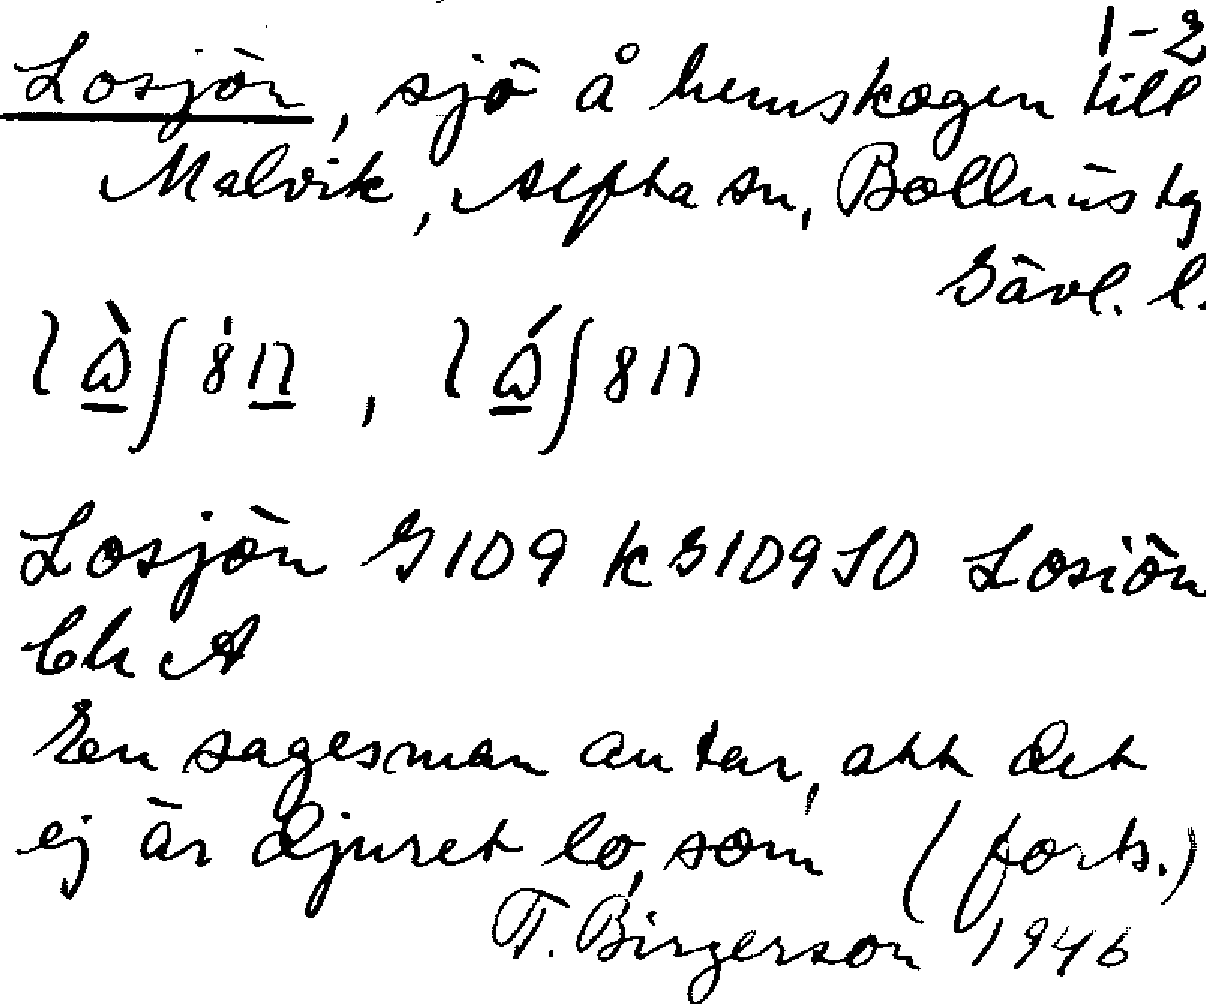 1-2
Losjön, sjö å hemskogen till
Malvik, Alfta sn, Bollnäs tg
Gävl. l.
Losjön G109 k G109 SO Losiön
Ch A
En sagesman antar, att det
ej är djuret lo, som (forts.)
T. Birgerson 1946